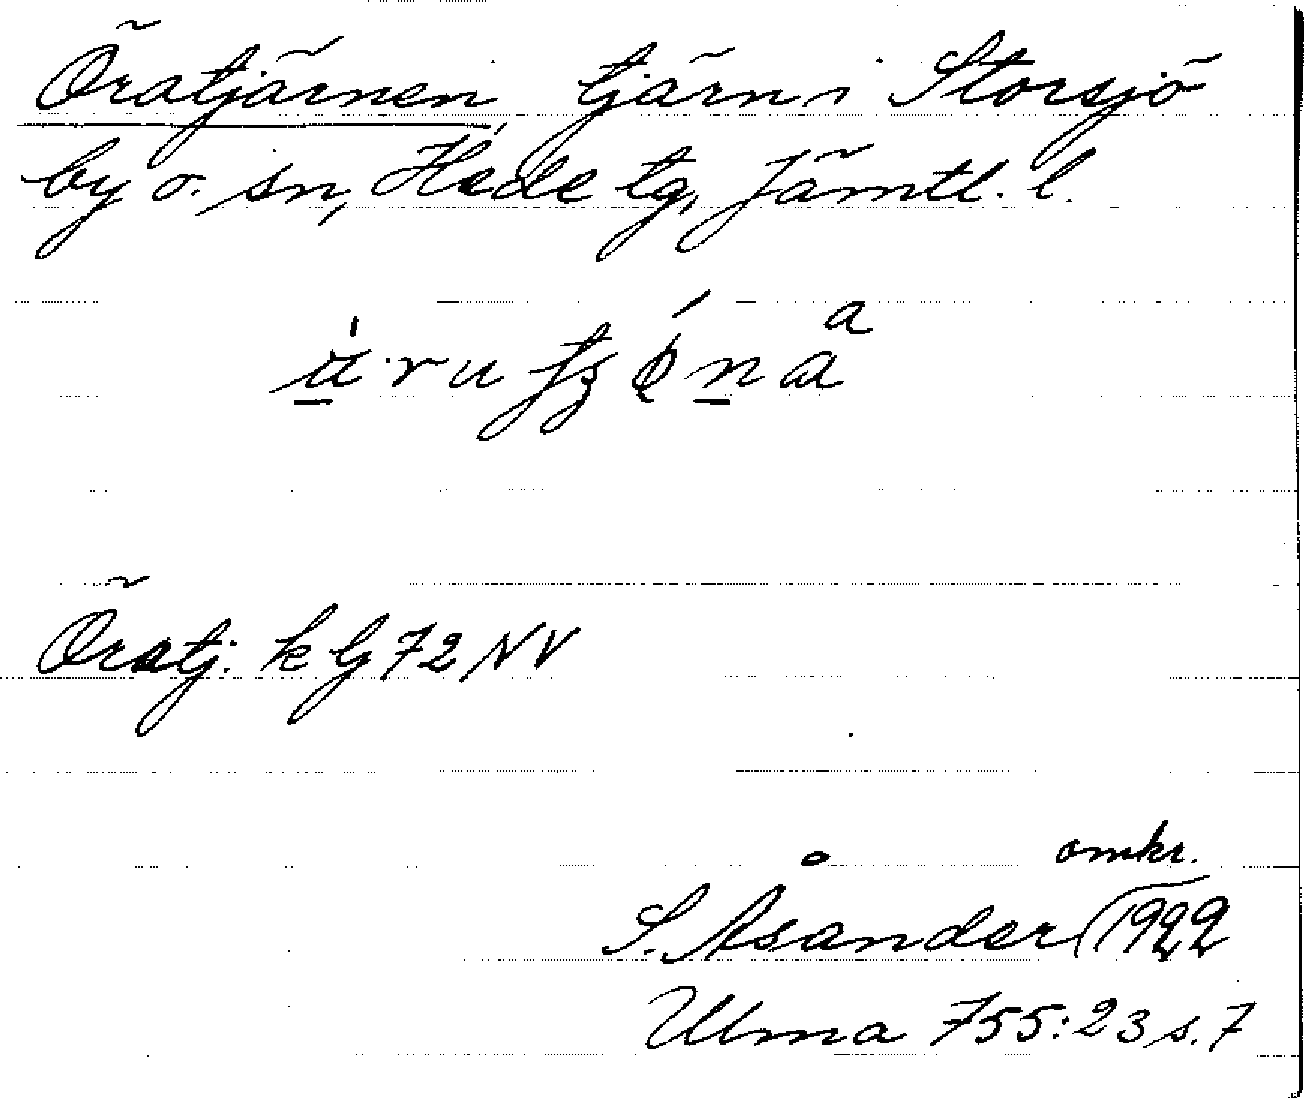 Öratjärnen, tjärn i Storsjö
by o. sn, Hede tg, Jämtl. l.
Öratj. kG 72 NV
omkr.
S. Åsander (1922
Ulma 755:23 s. 7